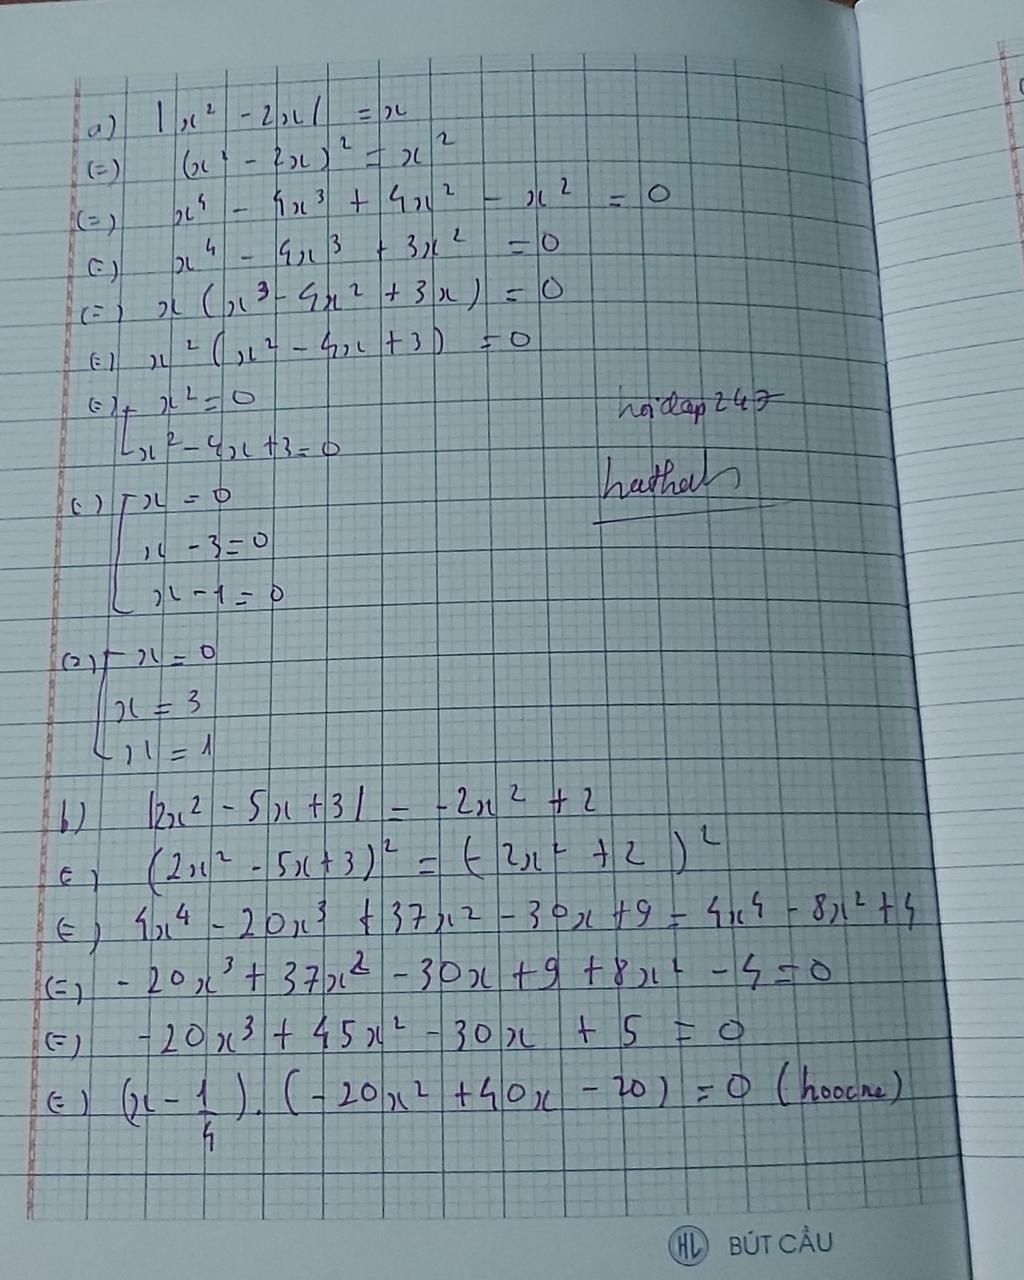 a) |x² - 2x| = x
(=) (x² - 2x)² = x²
(=) x⁴ - 4x³ + 4x² - x² = 0
(=) x⁴ - 4x³ + 3x² = 0
(=) x (x³ - 4x² + 3x) = 0
(=) x² (x² - 4x + 3) = 0
(=) [ x² = 0
x² - 4x + 3 = 0
hoidap247
(=) [ x = 0
x - 3 = 0
x - 1 = 0
(=) [ x = 0
x = 3
x = 1
b) |2x² - 5x + 3| = -2x² + 2
(=) (2x² - 5x + 3)² = (-2x² + 2)²
(=) 4x⁴ - 20x³ + 37x² - 30x + 9 = 4x⁴ - 8x² + 4
(=) -20x³ + 37x² - 30x + 9 + 8x² - 4 = 0
(=) -20x³ + 45x² - 30x + 5 = 0
(=) (x - 1/4).(-20x² + 40x - 20) = 0 (hoocne)
HL BÚT CẦU